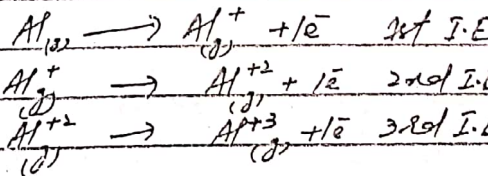 Al(g) ⟶ Al⁺(g) + 1ē 1st I.E
Al⁺(g) ⟶ Al⁺²(g) + 1ē 2nd I.E
Al⁺²(g) ⟶ Al⁺³(g) + 1ē 3rd I.E